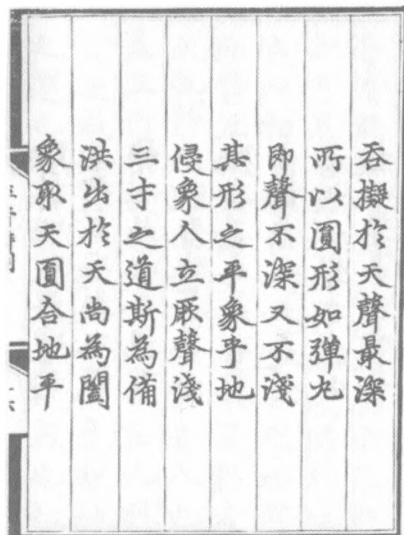 吞擬於天聲最深
所以圓形如彈丸
即聲不深又不淺
其形之平象乎地
侵象人立厥聲淺
三才之道斯為備
洪出於天尚為闔
象取天圓合地平